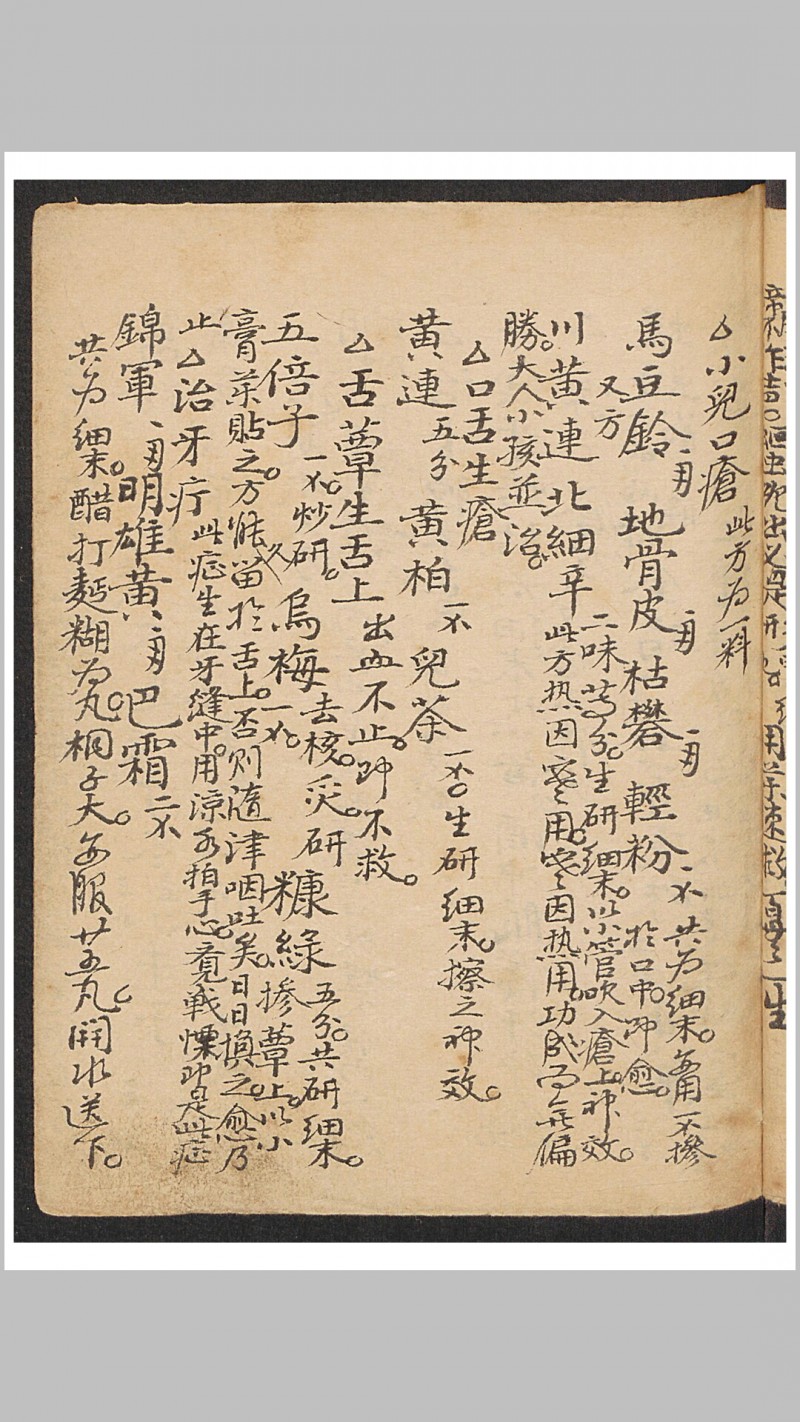 △小兒口瘡 此方为一料
馬豆鈴 地骨皮 枯礬 輕粉 共为細末。每用一不摻於口中。即愈。
又方
川黄連 北細辛 二味等分。生研細末。以小管吹入瘡上。神效。此方热因寒用。寒因热用。功成而無偏
勝。大人小孩並治。
△口舌生瘡
黄連五分 黄柏一不 兒茶一不。生研細末。擦之神效。
△舌蕈生舌上 出血不止。即不救。
五倍子一不。炒研。烏梅一不。去核。炙研 糠綠五分。共研細末。
摻蕈上。以小膏药貼之方能久留於舌上。否则隨津咽吐矣。日日换之愈乃
止△治牙疔 此症生在牙縫中。用涼水拍手心。竟戦慄即是此症
錦軍 明雄黄 巴霜二不
共为細末。醋打麵糊为丸。桐子大。每服廿五丸。開水送下。